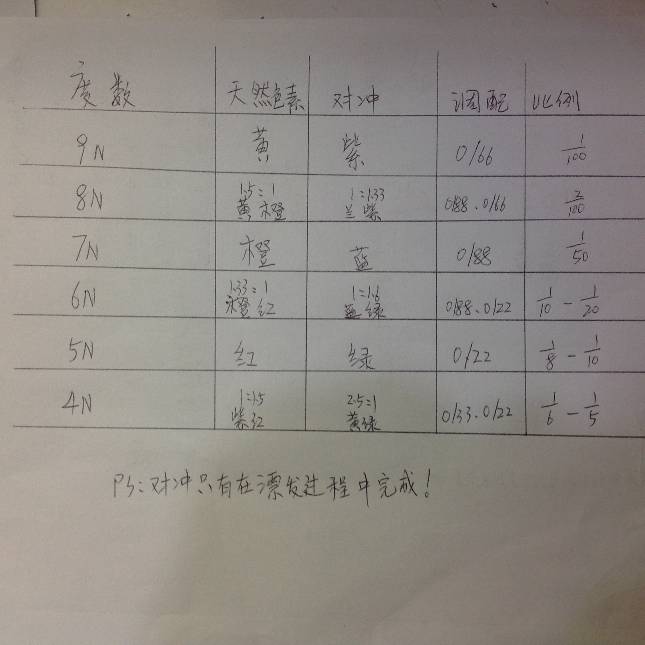 度数 天然色素 对冲 调配 比例
9N 黄 紫 0/66 1/100
8N 1.5:1 黄橙 1:1.33 兰紫 0/88、0/66 2/100
7N 橙 蓝 0/88 1/50
6N 1.33:1 橙红 1:1.6 蓝绿 0/88、0/22 1/10 - 1/20
5N 红 绿 0/22 1/8 - 1/10
4N 1:1.5 紫红 2.5:1 黄绿 0/33、0/22 1/6 - 1/5
PS:对冲只有在漂发过程中完成!